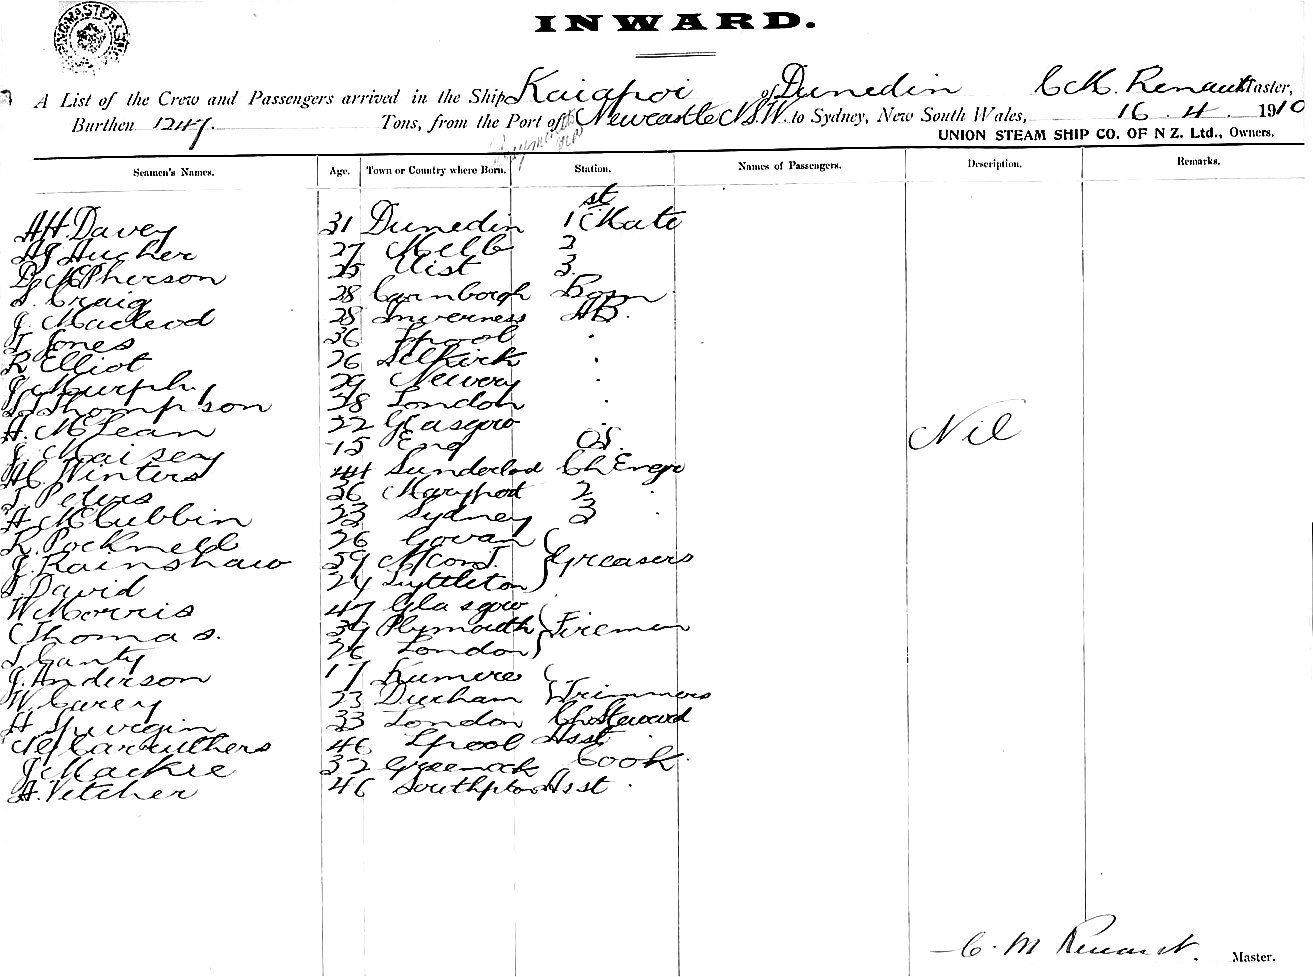 INWARD.
A List of the Crew and Passengers arrived in the Ship Kaiapoi of Dunedin C M. Renaut Master,
Burthen 1247. Tons, from the Port of Newcastle N.S.W. to Sydney, New South Wales, 16. 4. 1910
UNION STEAM SHIP CO. OF N Z. Ltd., Owners.
Seamen's Names. Age. Town or Country where Born. Station. Names of Passengers. Description. Remarks.
A H. Davey 31 Dunedin 1st Mate
Hucher 27 Melb 2
D. McPherson 25 Uist 3.
S. Craig 28 Bosn
J. Macleod 28 Inverness AB.
T Jones 36 Lpool "
R Elliot 26 Selkirk "
J. Murphy 29 Newery "
Thompson 38 London "
A. McLean 22 Glasgow
J. Maisey 15 Eng OS.
Winters 44 Sunderlad Ch Engr
T. Peters 26 Maryport 2 "
A McCubbin 23 Sydney 3 "
R. Pocknell 26 Govan
J. Rainshaw 59 Greasers
T. David 24 Lyttleton
W Morris 47 Glasgow
C Thomas. 39 Plymouth Firemen
S. Ganty 26 London
J. Anderson 17 Kumere
W. Carey 23 Durham Trimmers
A Spurgin 33 London Ch. Steward
Caruthers 46 Lpool Asst
J. Mackie 32 Greenock Cook.
A. Vetcher 46 Southpton Asst "
Nil
C. M Renaut. Master.